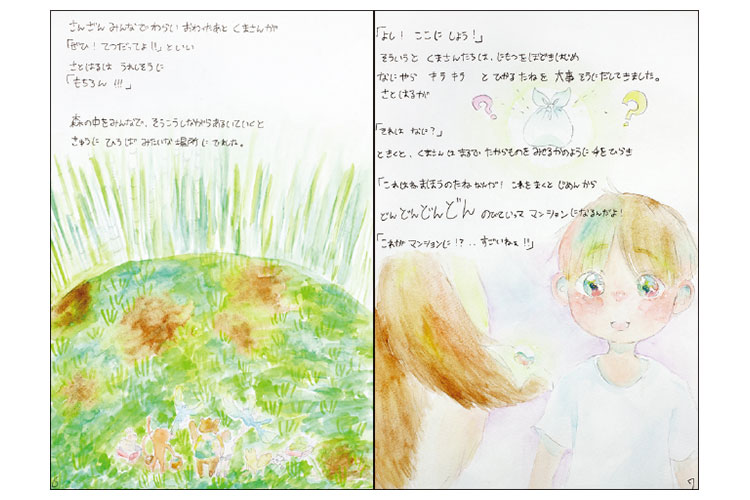 さんざん みんなで わらい おわったあと くまさんが
「ぜひ！てつだってよ!!」といい
さとはるは うれしそうに
「もちろん !!!」
森の中をみんなで、そうこうしながらあるいていくと
きゅうに ひろば みたいな場所 にでれた。
6
「よし！ ここに しよう！」
そういうと くまさんたちは、にもつをほどきはじめ
なにやら キラ キラ とひかるたねを 大事そうにだしてきました。
さとはるが
? ?
「それは なに？」
ときくと、くまさんはまるで たからものをみせるかのように 手をひらき
「これはねまほうのたねなんだ！ これをまくと じめんから
どんどんどんどん のびていって マンションになるんだよ！
「これが マンションに!?..すごいねぇ!!」
7